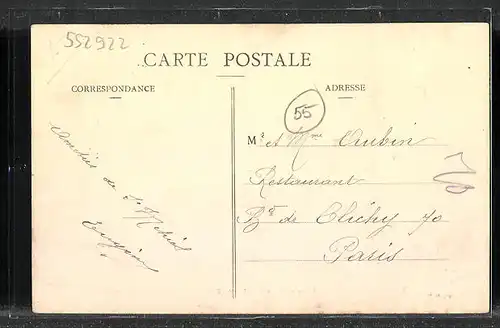 552922
CARTE POSTALE
CORRESPONDANCE
ADRESSE
55
Amitiés de St Mihiel
Eugène
Mr et Mme Aubin
Restaurant
Bd de Clichy 70
Paris